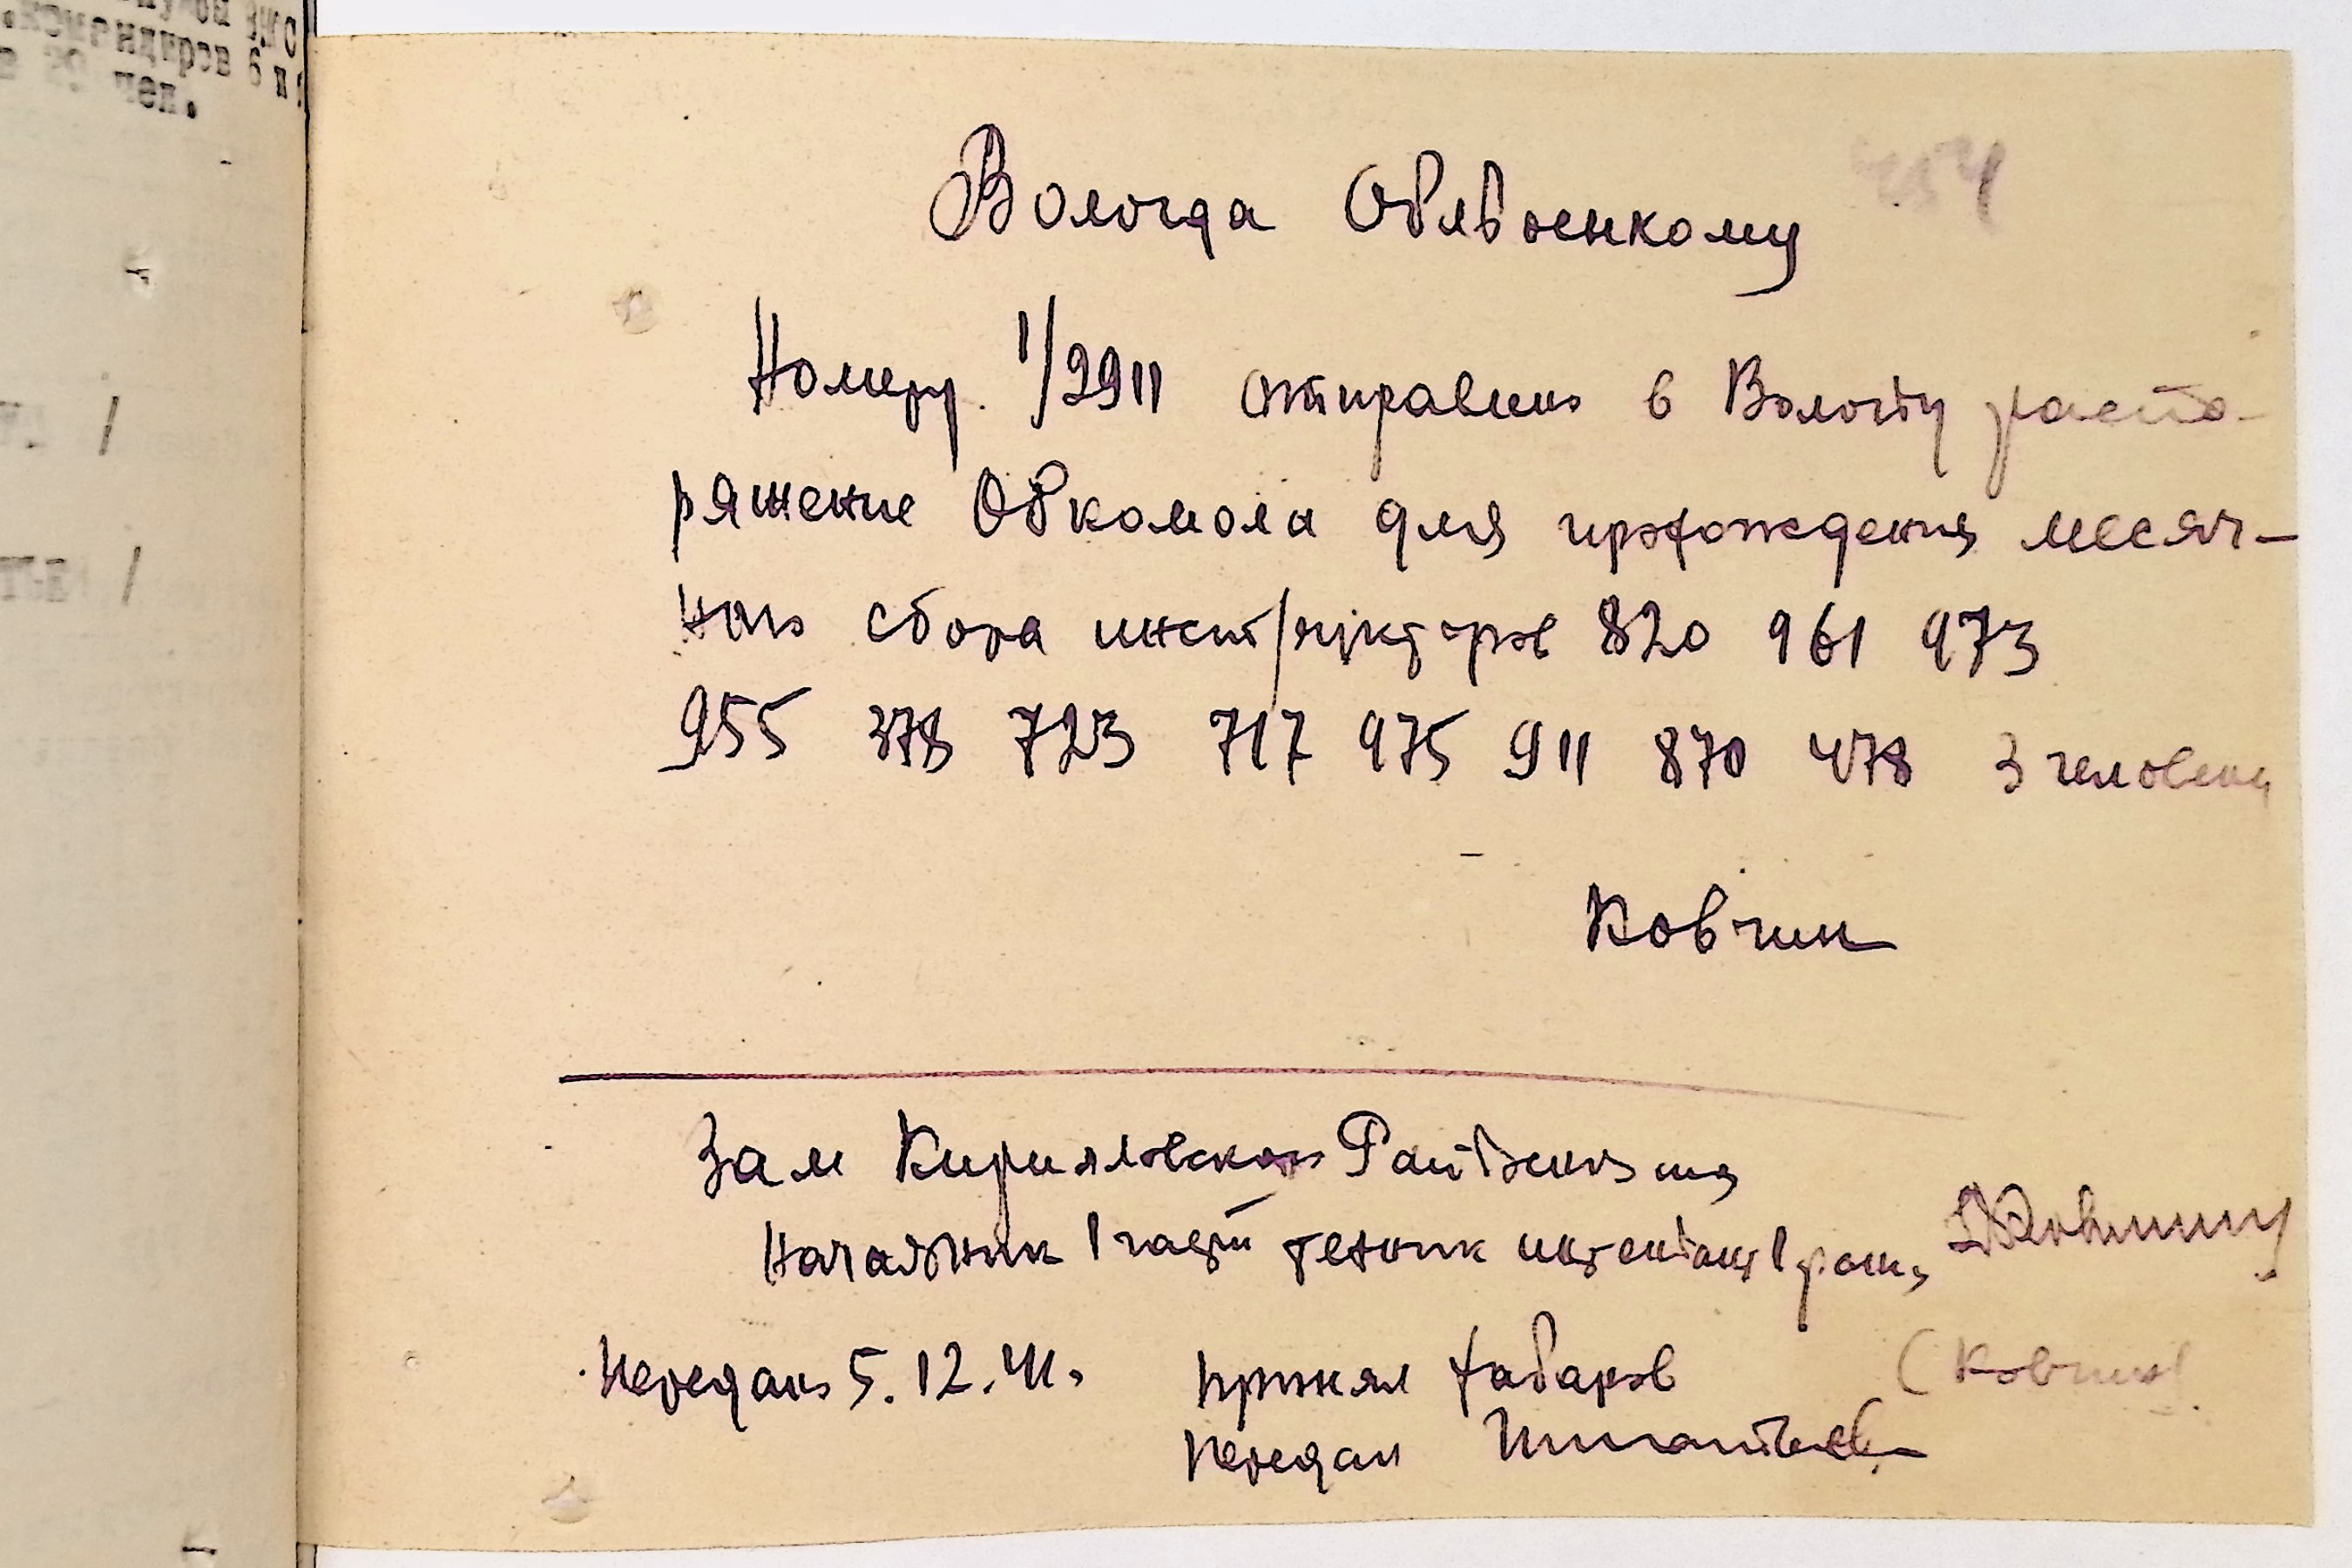 командиров 6 и
20 чел.
Вологда Облвоенкому
Номер 1/2911 отправлено в Вологду распо-
ряжение Обкомола для прохождения месяч-
ного сбора инструкторов 820 961 973
955 378 723 717 975 911 870 478 3 человека
Ковчин
Зам Кирилловского Райвоенкома
Начальник 1 части техник интендант 1 ранга
(Ковчин)
Передано 5.12.41. принял Хабаров
передал